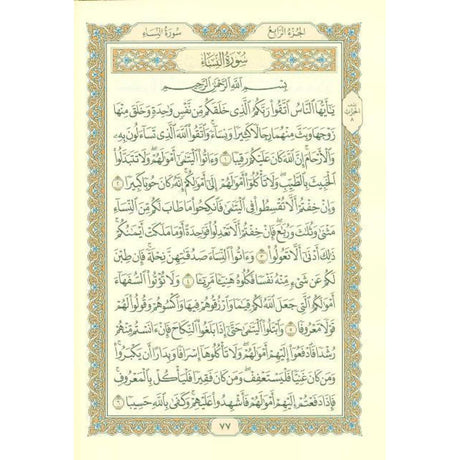 الجزء الرابع
سورة النساء
سورة النساء
بسم الله الرحمن الرحيم
يَٰٓأَيُّهَا ٱلنَّاسُ ٱتَّقُوا۟ رَبَّكُمُ ٱلَّذِى خَلَقَكُم مِّن نَّفْسٍ وَٰحِدَةٍ وَخَلَقَ مِنْهَا
زَوْجَهَا وَبَثَّ مِنْهُمَا رِجَالًا كَثِيرًا وَنِسَآءً ۚ وَٱتَّقُوا۟ ٱللَّهَ ٱلَّذِى تَسَآءَلُونَ بِهِۦ
وَٱلْأَرْحَامَ ۚ إِنَّ ٱللَّهَ كَانَ عَلَيْكُمْ رَقِيبًا ١ وَءَاتُوا۟ ٱلْيَتَٰمَىٰٓ أَمْوَٰلَهُمْ ۖ وَلَا تَتَبَدَّلُوا۟
ٱلْخَبِيثَ بِٱلطَّيِّبِ ۖ وَلَا تَأْكُلُوٓا۟ أَمْوَٰلَهُمْ إِلَىٰٓ أَمْوَٰلِكُمْ ۚ إِنَّهُۥ كَانَ حُوبًا كَبِيرًا ٢
وَإِنْ خِفْتُمْ أَلَّا تُقْسِطُوا۟ فِى ٱلْيَتَٰمَىٰ فَٱنكِحُوا۟ مَا طَابَ لَكُم مِّنَ ٱلنِّسَآءِ
مَثْنَىٰ وَثُلَٰثَ وَرُبَٰعَ ۖ فَإِنْ خِفْتُمْ أَلَّا تَعْدِلُوا۟ فَوَٰحِدَةً أَوْ مَا مَلَكَتْ أَيْمَٰنُكُمْ ۚ
ذَٰلِكَ أَدْنَىٰٓ أَلَّا تَعُولُوا۟ ٣ وَءَاتُوا۟ ٱلنِّسَآءَ صَدُقَٰتِهِنَّ نِحْلَةً ۚ فَإِن طِبْنَ
لَكُمْ عَن شَىْءٍ مِّنْهُ نَفْسًا فَكُلُوهُ هَنِيٓـًٔا مَّرِيٓـًٔا ٤ وَلَا تُؤْتُوا۟ ٱلسُّفَهَآءَ
أَمْوَٰلَكُمُ ٱلَّتِى جَعَلَ ٱللَّهُ لَكُمْ قِيَٰمًا وَٱرْزُقُوهُمْ فِيهَا وَٱكْسُوهُمْ وَقُولُوا۟ لَهُمْ
قَوْلًا مَّعْرُوفًا ٥ وَٱبْتَلُوا۟ ٱلْيَتَٰمَىٰ حَتَّىٰٓ إِذَا بَلَغُوا۟ ٱلنِّكَاحَ فَإِنْ ءَانَسْتُم مِّنْهُمْ
رُشْدًا فَٱدْفَعُوٓا۟ إِلَيْهِمْ أَمْوَٰلَهُمْ ۖ وَلَا تَأْكُلُوهَآ إِسْرَافًا وَبِدَارًا أَن يَكْبَرُوا۟ ۚ
وَمَن كَانَ غَنِيًّا فَلْيَسْتَعْفِفْ ۖ وَمَن كَانَ فَقِيرًا فَلْيَأْكُلْ بِٱلْمَعْرُوفِ ۚ
فَإِذَا دَفَعْتُمْ إِلَيْهِمْ أَمْوَٰلَهُمْ فَأَشْهِدُوا۟ عَلَيْهِمْ ۚ وَكَفَىٰ بِٱللَّهِ حَسِيبًا ٦
٧٧